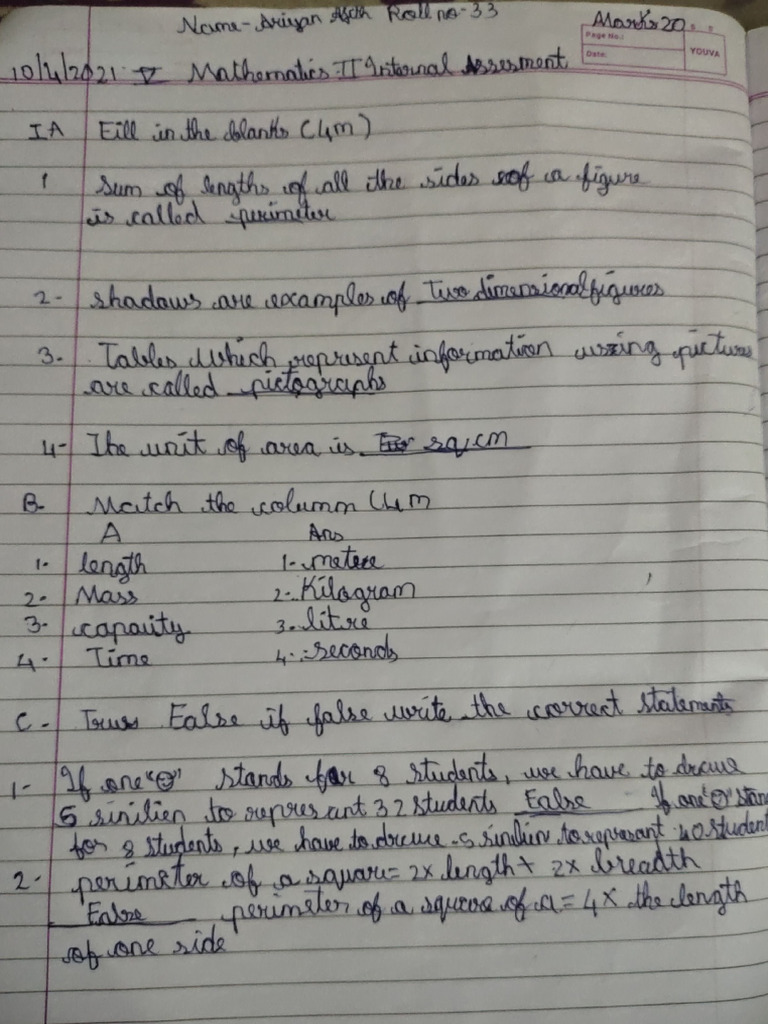 Name- Ariyan Roll no-33
Marks 20
Page No.:
Date:
YOUVA
10/4/2021 V Mathematics-II Internal Assesment
I A Fill in the blanks (4m)
1 Sum of lengths of all the sides of a figure
is called perimeter
2- shadows are examples of Two dimensional figures
3. Tables which represent information using picture
are called pictographs
4- The unit of area is sq cm
B- Match the column (4m
A Ans
1- length 1- metere
2- Mass 2- Kilogram
3- capacity 3. litre
4- Time 4- seconds
C- True False if false write the correct statements
1- If one "☺" stands for 8 students, we have to drawe
5 similien to represant 32 students False If one "☺" stan
for 8 students, we have to drawe 5 similien to represant 40 student
2- perimeter of a square = 2x length + 2x breadth
False perimeter of a square of a = 4x the length
of one side